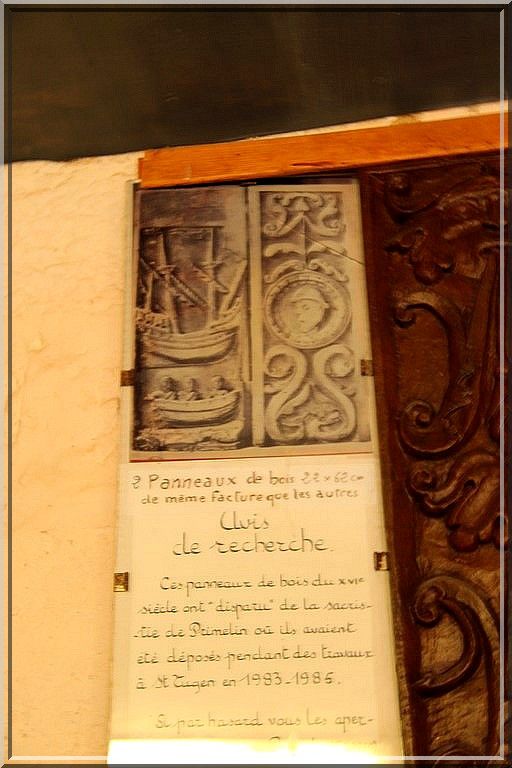 2 Panneaux de bois 22 x 62 cm
de même facture que les autres
Avis
de recherche.
Ces panneaux de bois du XVIe
siècle ont "disparu" de la sacris-
-tie de Primelin où ils avaient
été déposés pendant des travaux
à St Tugen en 1983-1985.
Si par hasard vous les aper-